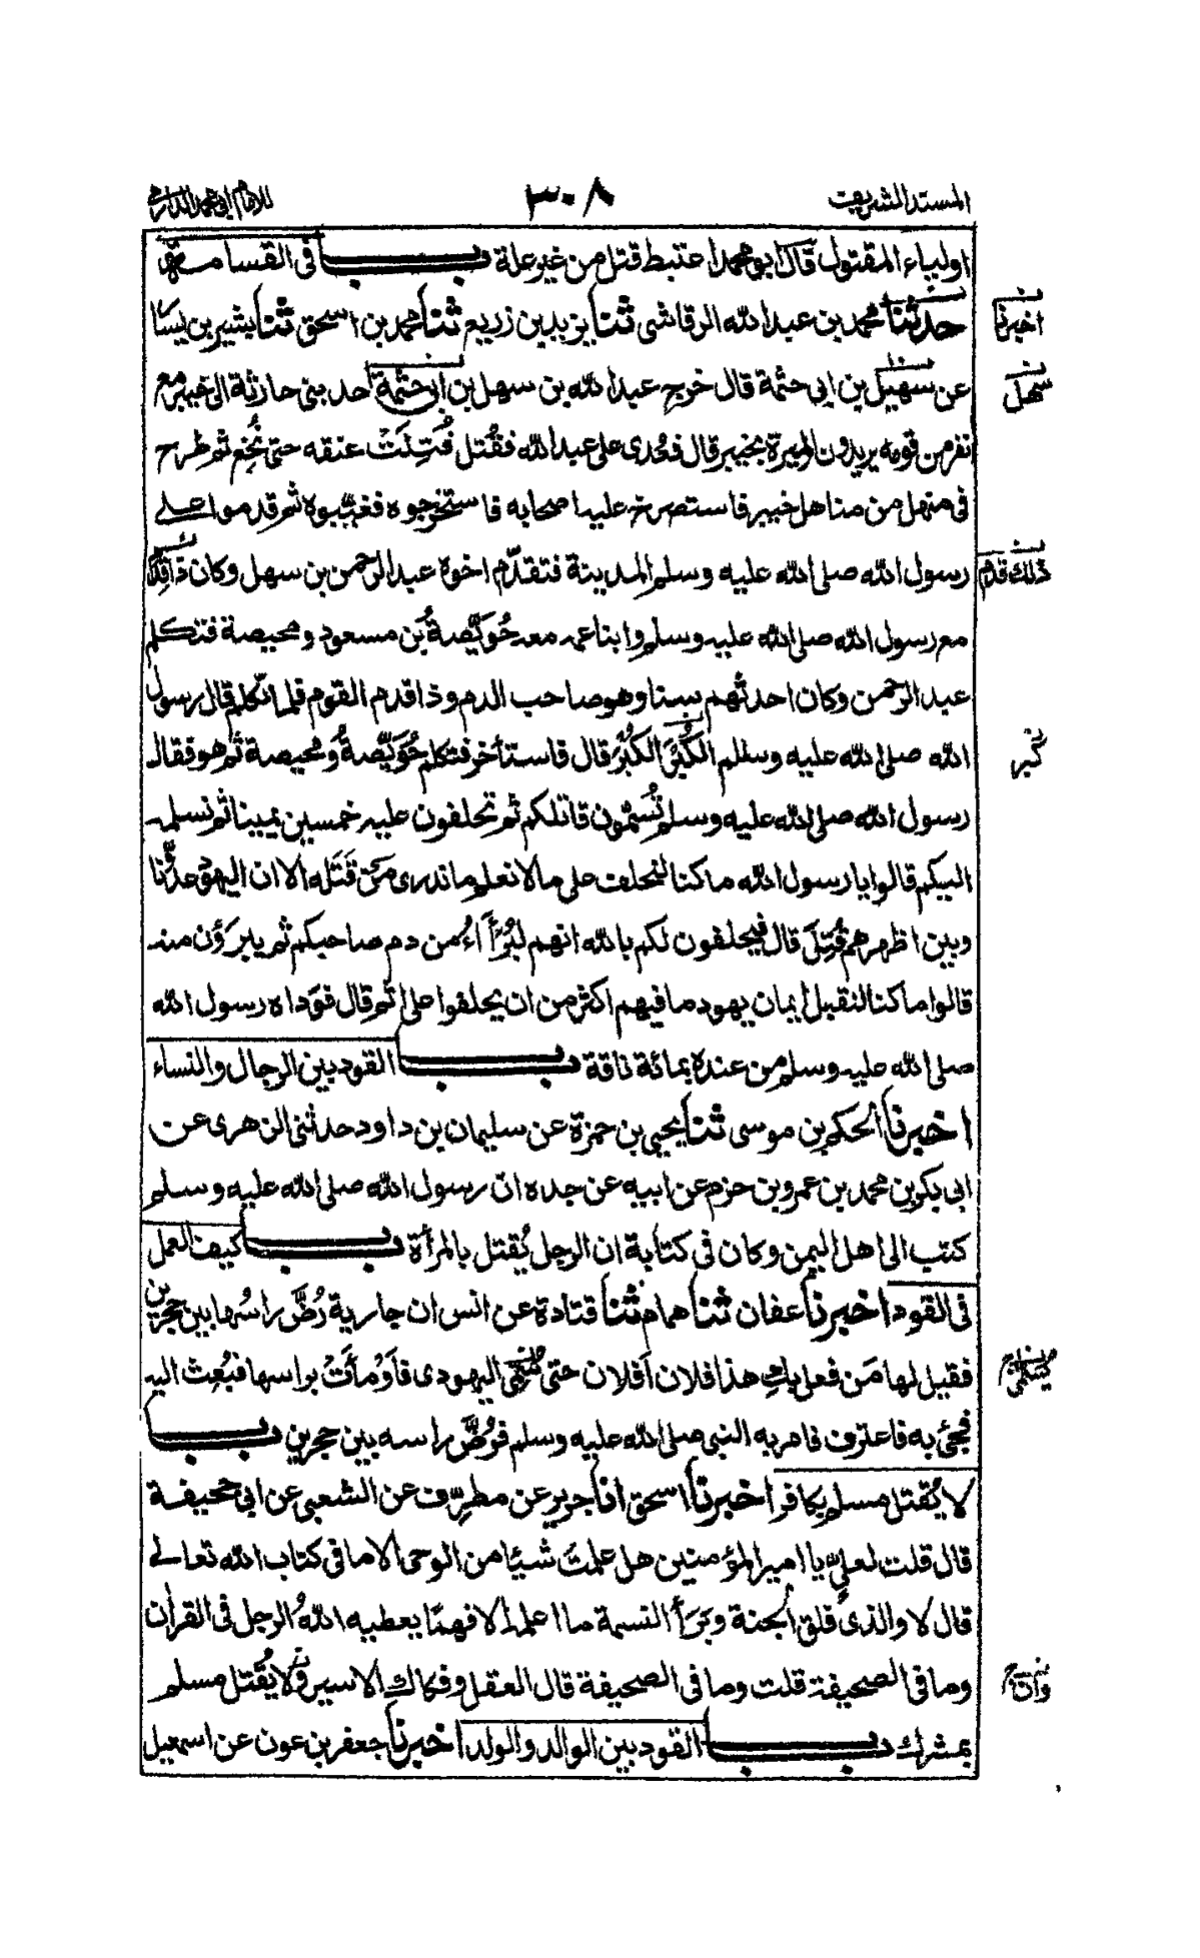 المسند الشريف ٣٠٨ للامام ابى محمد الدارمى
اولياء المقتول قال ابو محمد اعتبط قتل من غير علة باب فى القسامة
حدثنا محمد بن عبد الله الرقاشى ثنا يزيد بن زريع ثنا محمد بن اسحق ثنا بشير بن يسار
اخبرنا
عن سهيل بن ابى حثمة قال خرج عبد الله بن سهل بن ابى حثمة احد بنى حارثة الى خيبر مع
سهل
نفر من قومه يريدون الميرة بخيبر قال فعُدى على عبد الله فقُتل فُتِلَتْ عنقه حتى نُخِع ثم طرح
فى منهل من مناهل خيبر فاستصرخ عليه اصحابه فاستخرجوه فغيّبوه ثم قدموا على
رسول الله صلى الله عليه وسلم المدينة فتقدّم اخوه عبد الرحمن بن سهل وكان ذا قِدَم
ذلك قدم
مع رسول الله صلى الله عليه وسلم وابنا عمه معه حُوَيِّصةُ بن مسعود ومحيصة فتكلم
عبد الرحمن وكان احدثهم سنا وهو صاحب الدم وذا قدم القوم فلما تكلم قال رسول
الله صلى الله عليه وسلم الكُبْرَ الكُبْرَ قال فاستأخر فتكلم حُوَيِّصةُ ومحيصة ثم هو فقال
كبر
رسول الله صلى الله عليه وسلم تُسَمُّون قاتلكم ثم تحلفون عليه خمسين يمينا ثم نسلمه
اليكم قالوا يا رسول الله ما كنا لنحلف على ما لا نعلم ما ندرى مَن قَتَله الا ان اليهود عدوُّنا
وبين اظهرهم قُتِلَ قال فيحلفون لكم بالله انهم لبُرَأَاءُ من دم صاحبكم ثم يبرَؤن منه
قالوا ما كنا لنقبل ايمان يهود ما فيهم اكثر من ان يحلفوا على اثم قال فوَداه رسول الله
صلى الله عليه وسلم من عنده بمائة ناقة باب القود بين الرجال والنساء
اخبرنا الحكم بن موسى ثنا يحيى بن حمزة عن سليمان بن داود حدثنى الزهرى عن
ابى بكر بن محمد بن عمرو بن حزم عن ابيه عن جده ان رسول الله صلى الله عليه وسلم
كتب الى اهل اليمن وكان فى كتابة ان الرجل يُقتل بالمرأة باب كيف العمل
فى القود اخبرنا عفان ثنا همام ثنا قتادة عن انس ان جارية رُضَّ راسُها بين حجرين
فقيل لها مَن فعل بكِ هذا فلان أفلان حتى سُمّى اليهودى فأومأتْ براسها فبُعِث اليه
فجئ به فاعترف فامر به النبى صلى الله عليه وسلم فرُضَّ راسه بين حجرين باب
لا يُقتل مسلم بكافر اخبرنا اسحق انا جرير عن مطرِّف عن الشعبى عن ابى جحيفة
قال قلت لعلىّ يا امير المؤمنين هل علمتَ شيئا من الوحى الا ما فى كتاب الله تعالى
قال لا والذى فلق الجنة وبَرَأ النسمة ما اعلمه الا فهمًا يعطيه اللهُ الرجل فى القرأن
وما فى الصحيفة قلت وما فى الصحيفة قال العقل وفكاك الاسير ولا يُقتل مسلم
وان
بمشرك باب القود بين الوالد والولد اخبرنا جعفر بن عون عن اسمعيل